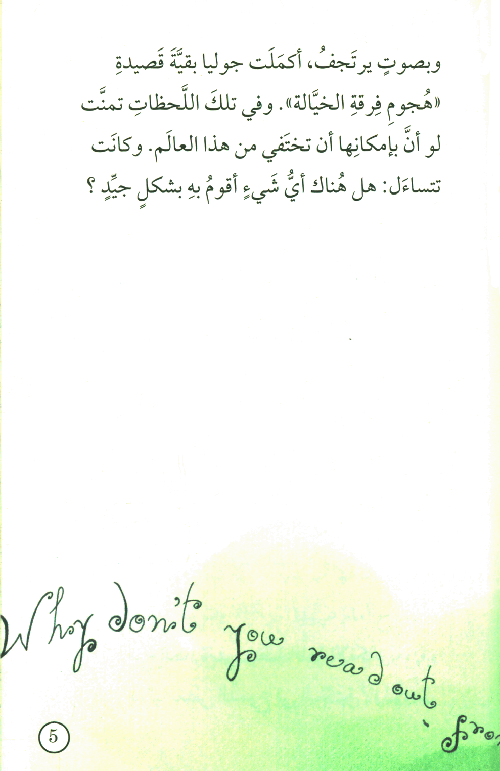 وبصوتٍ يرتَجفُ، أكمَلَت جوليا بقيَّةَ قَصيدةِ
«هُجومِ فِرقةِ الخيَّالة». وفي تلكَ اللَّحظاتِ تمنَّت
لو أنَّ بإمكانِها أن تختَفي من هذا العالَم. وكانَت
تتساءَل: هل هُناك أيُّ شَيءٍ أقومُ بهِ بشكلٍ جيِّدٍ ؟
Why don't you read out fro
5